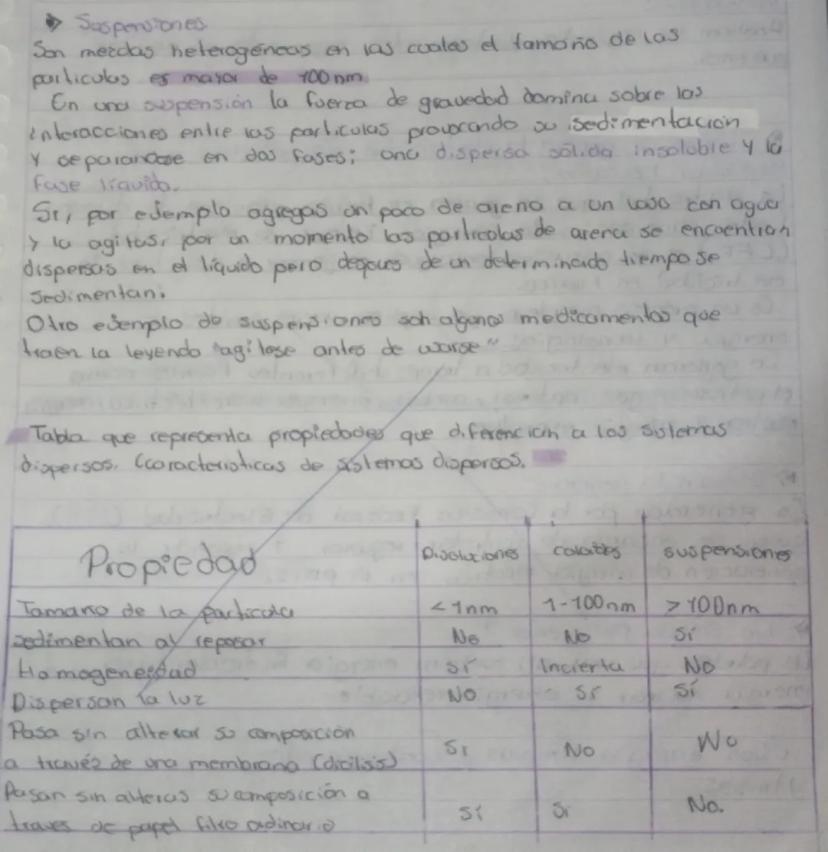 Suspensiones
Son mezclas heterogéneas en las cuales el tamaño de las
particulas es mayor de 100nm
En una suspensión la fuerza de gravedad domina sobre las
interacciones entre las particulas provocando su sedimentación
y separandose en dos fases; una dispersa sólida insoluble y la
fase liquida.
Si, por ejemplo agregas un poco de arena a un vaso con agua
y la agitas, por un momento las particulas de arena se encuentran
dispersas en el líquido pero después de un determinado tiempo se
sedimentan.
Otro ejemplo de suspensiones son algunos medicamentos que
traen la leyenda "agitese antes de usarse"
Tabla que representa propiedades que diferencian a los sistemas
dispersos. (caracteristicas de sistemas dispersos.
Propiedad Disoluciones coloides suspensiones
Tamano de la particula <1nm 1-100nm >100nm
sedimentan al reposar No No Sí
Homogeneidad Sí Incierta No
Dispersan la luz No Sí Sí
Pasa sin alterar su composición
a travéz de una membrana (diálisis) Si No No
Pasan sin alterar su composición a
traves de papel filtro ordinario Sí Si No.